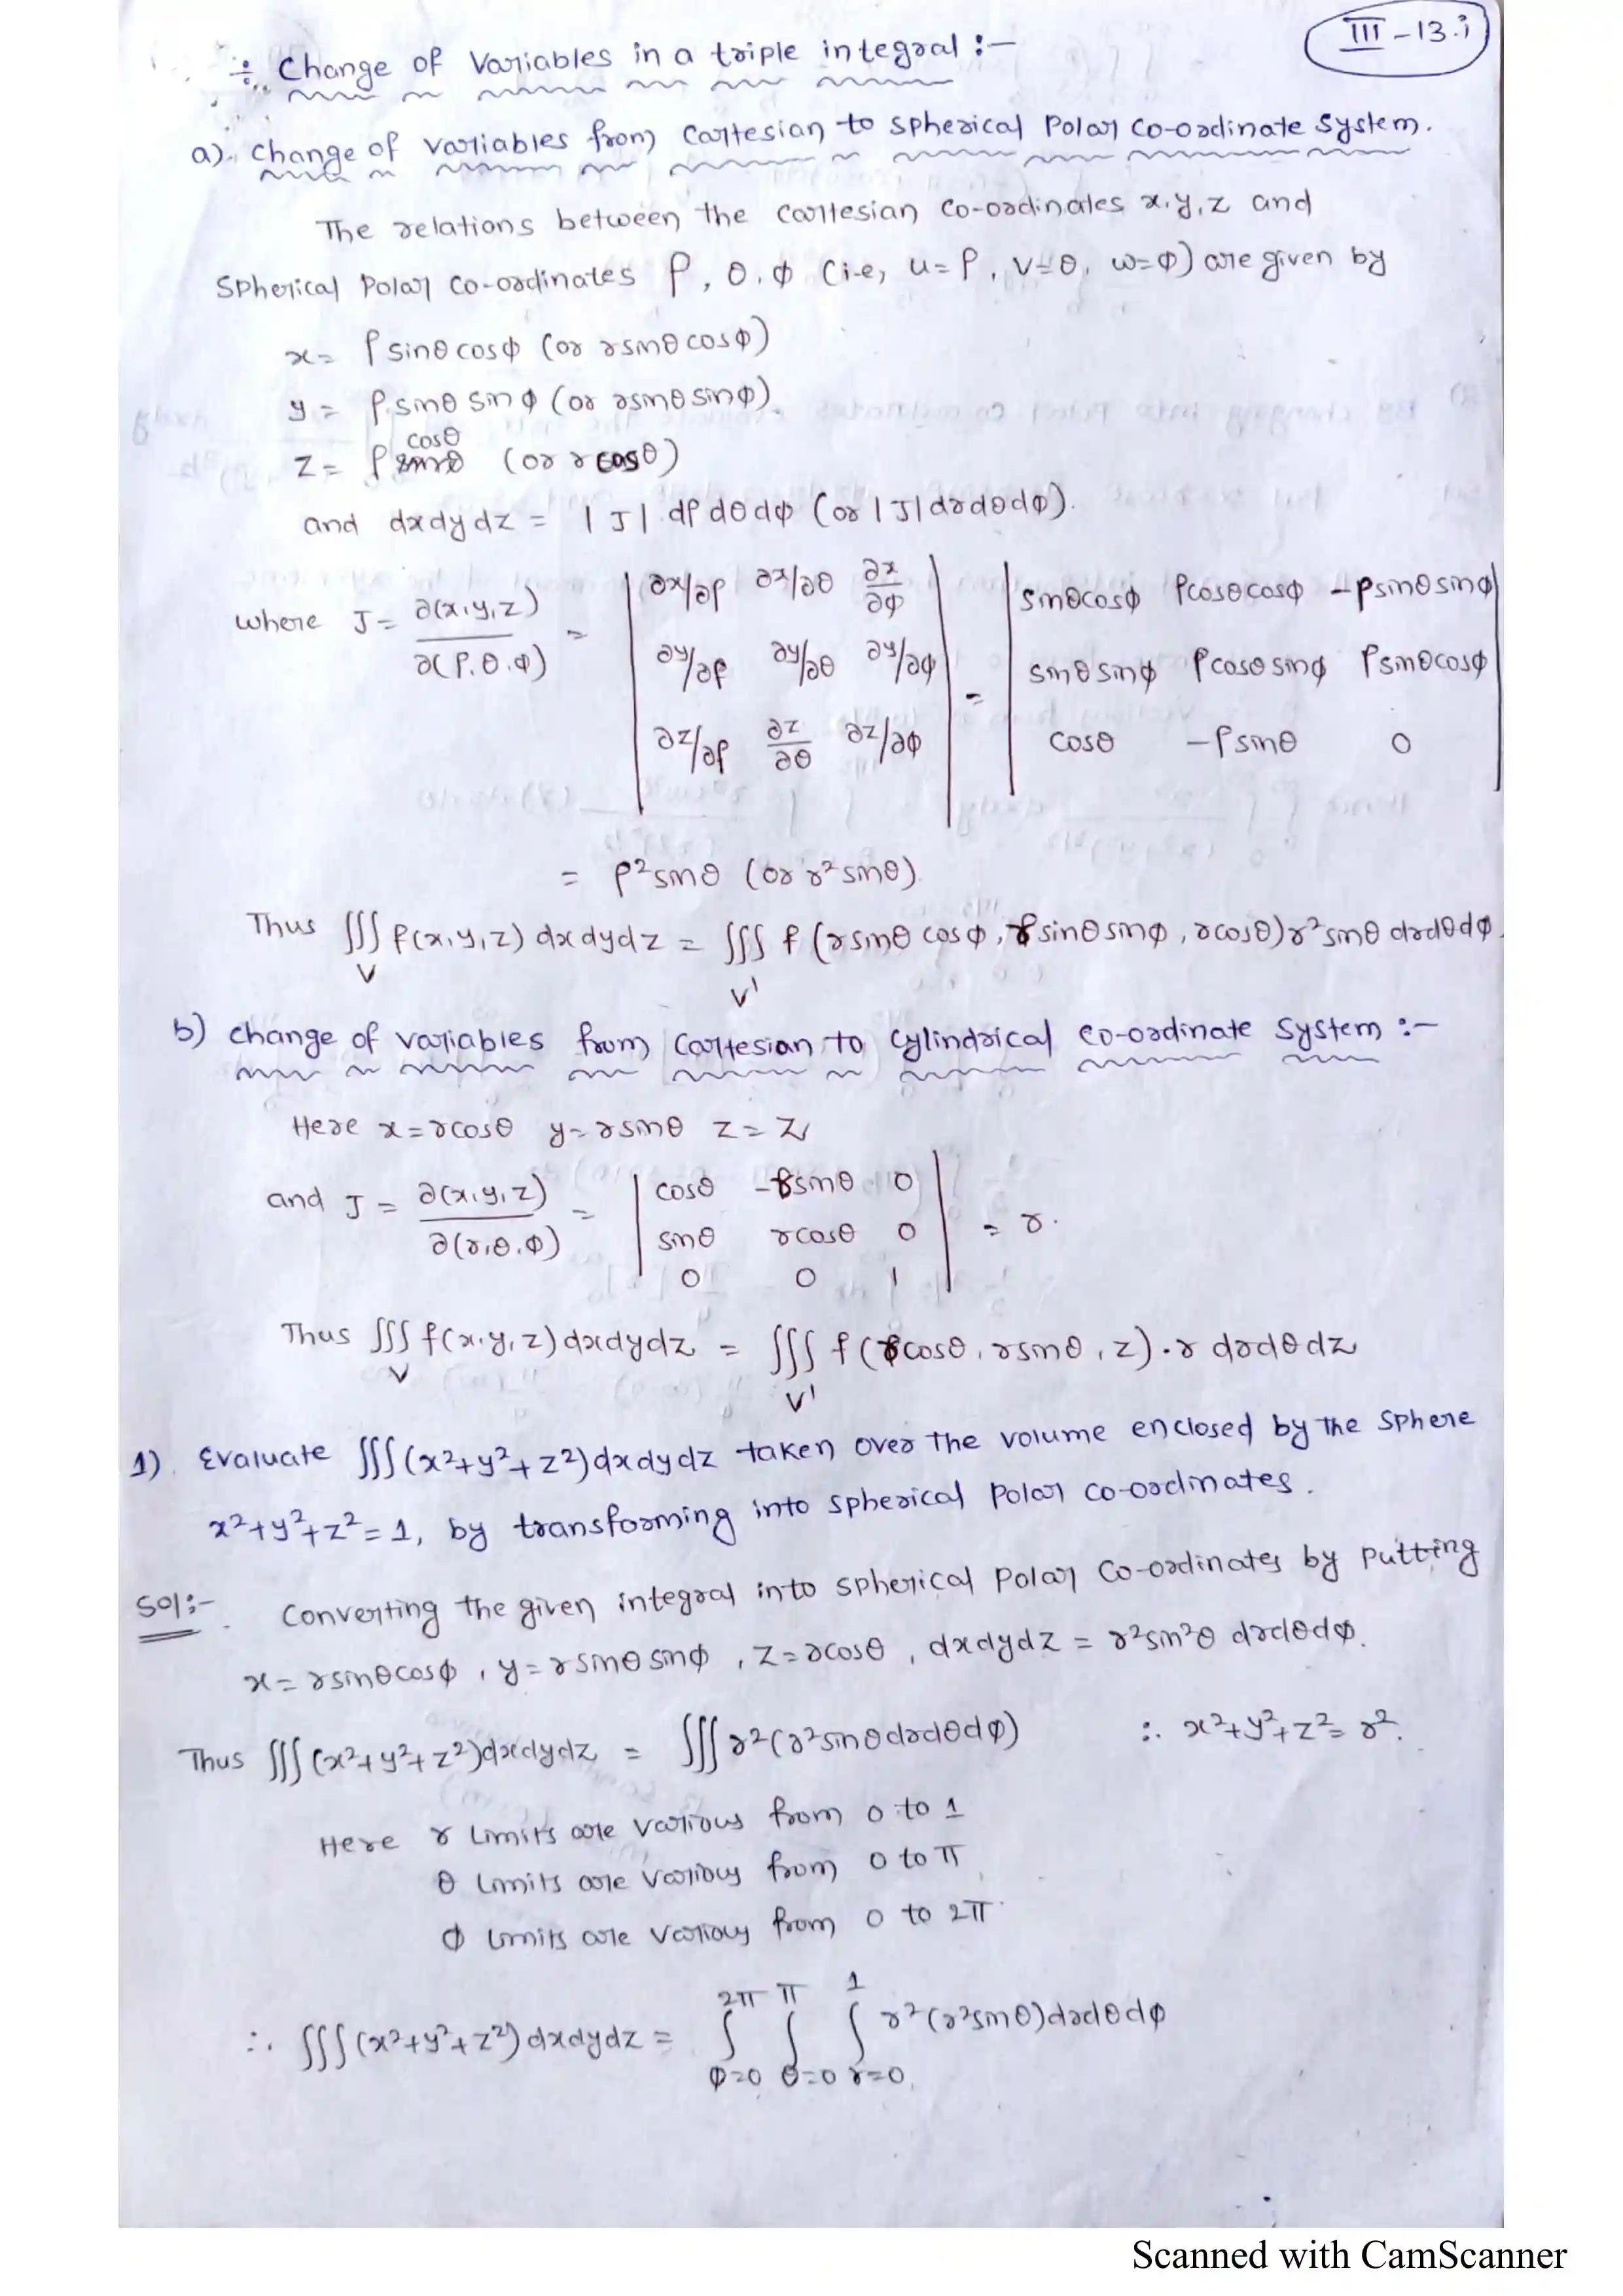 III-13.i
÷ Change of Variables in a triple integral :-
a). Change of variables from Cartesian to spherical Polar Co-ordinate System.
The relations between the Cartesian Co-ordinates x,y,z and
Spherical Polar Co-ordinates ρ, θ, φ (i.e, u=ρ, v=θ, w=φ) are given by
x= ρ sinθ cosφ (or r sinθ cosφ)
y = ρ sinθ sinφ (or r sinθ sinφ)
z = ρ cosθ (or r cosθ)
and dx dy dz = |J| dρ dθ dφ (or |J| dr dθ dφ).
where J= ∂(x,y,z)/∂(ρ,θ,φ) = | ∂x/∂ρ ∂x/∂θ ∂x/∂φ | = | sinθcosφ ρcosθcosφ -ρsinθsinφ |
| ∂y/∂ρ ∂y/∂θ ∂y/∂φ | | sinθsinφ ρcosθsinφ ρsinθcosφ |
| ∂z/∂ρ ∂z/∂θ ∂z/∂φ | | cosθ -ρsinθ 0 |
= ρ²sinθ (or r²sinθ).
Thus ∭_V f(x,y,z) dx dy dz = ∭_V' f (r sinθ cosφ, r sinθ sinφ, r cosθ) r² sinθ dr dθ dφ.
b) Change of variables from Cartesian to Cylindrical Co-ordinate System :-
Here x=rcosθ y=rsinθ z=z
and J = ∂(x,y,z)/∂(r,θ,φ) = | cosθ -rsinθ 0 |
| sinθ rcosθ 0 | = r.
| 0 0 1 |
Thus ∭_V f(x,y,z) dx dy dz = ∭_V' f (rcosθ, rsinθ, z).r dr dθ dz
1). Evaluate ∭(x²+y²+z²)dx dy dz taken over the volume enclosed by the Sphere
x²+y²+z²=1, by transforming into spherical Polar Co-ordinates.
Sol:- Converting the given integral into spherical Polar Co-ordinates by putting
x=rsinθcosφ, y=rsinθsinφ, z=rcosθ, dx dy dz = r²sin²θ dr dθ dφ.
Thus ∭(x²+y²+z²)dx dy dz = ∭ r²(r²sinθ dr dθ dφ) ∴ x²+y²+z²= r².
Here r Limits are Various from 0 to 1
θ Limits are Various from 0 to π
φ Limits are Various from 0 to 2π
∴ ∭(x²+y²+z²) dx dy dz = ∫_{φ=0}^{2π} ∫_{θ=0}^{π} ∫_{r=0}^{1} r²(r²sinθ) dr dθ dφ
Scanned with CamScanner